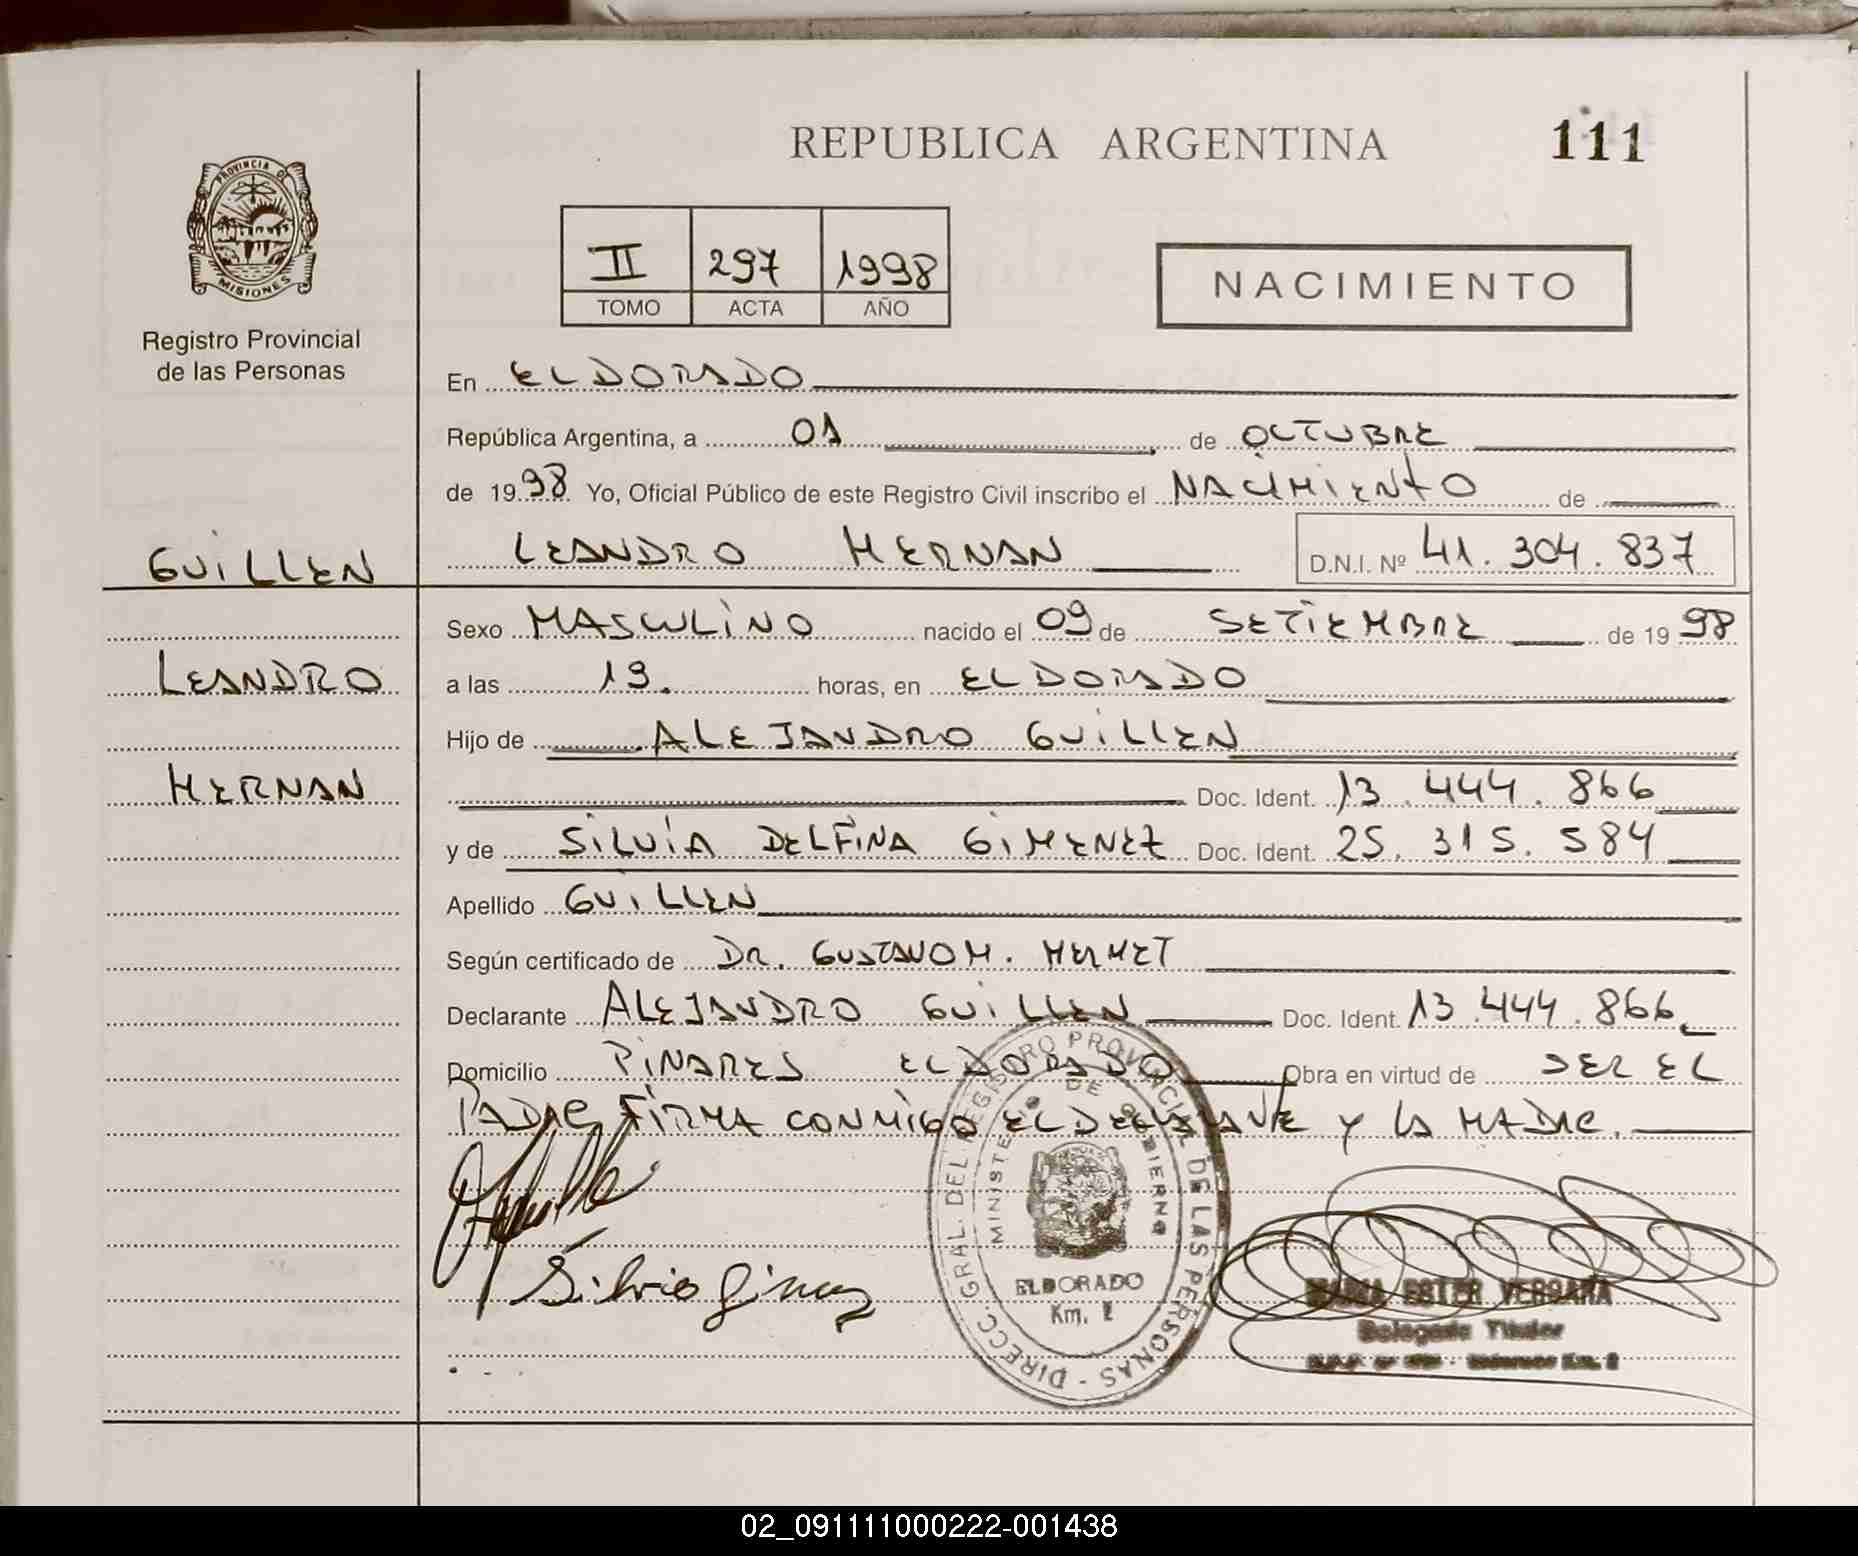 REPUBLICA ARGENTINA
111
PROVINCIA DE MISIONES
Registro Provincial
de las Personas
II 297 1998
TOMO ACTA AÑO
NACIMIENTO
En ELDORADO
República Argentina, a 01 de OCTUBRE
de 1998 Yo, Oficial Público de este Registro Civil inscribo el NACIMIENTO de
GUILLEN
LEANDRO HERNAN D.N.I. Nº 41.304.837
Sexo MASCULINO nacido el 09 de SETIEMBRE de 1998
LEANDRO
a las 19. horas, en ELDORADO
Hijo de ALEJANDRO GUILLEN
HERNAN
Doc. Ident. 13.444.866
y de SILVIA DELFINA GIMENEZ Doc. Ident. 25.315.584
Apellido GUILLEN
Según certificado de DR. GUSTAVO M.
Declarante ALEJANDRO GUILLEN Doc. Ident. 13.444.866
Domicilio PINARES ELDORADO Obra en virtud de SER EL
PADRE FIRMA CONMIGO EL DECLARANTE Y LA MADRE.
Silvia Gimenez
DIRECC. GRAL. DEL REGISTRO PROVINCIAL DE LAS PERSONAS -
MINISTERIO DE GOBIERNO
ELDORADO
Km. 2
MARIA ESTER VERGARA
Delegada Titular
02_091111000222-001438